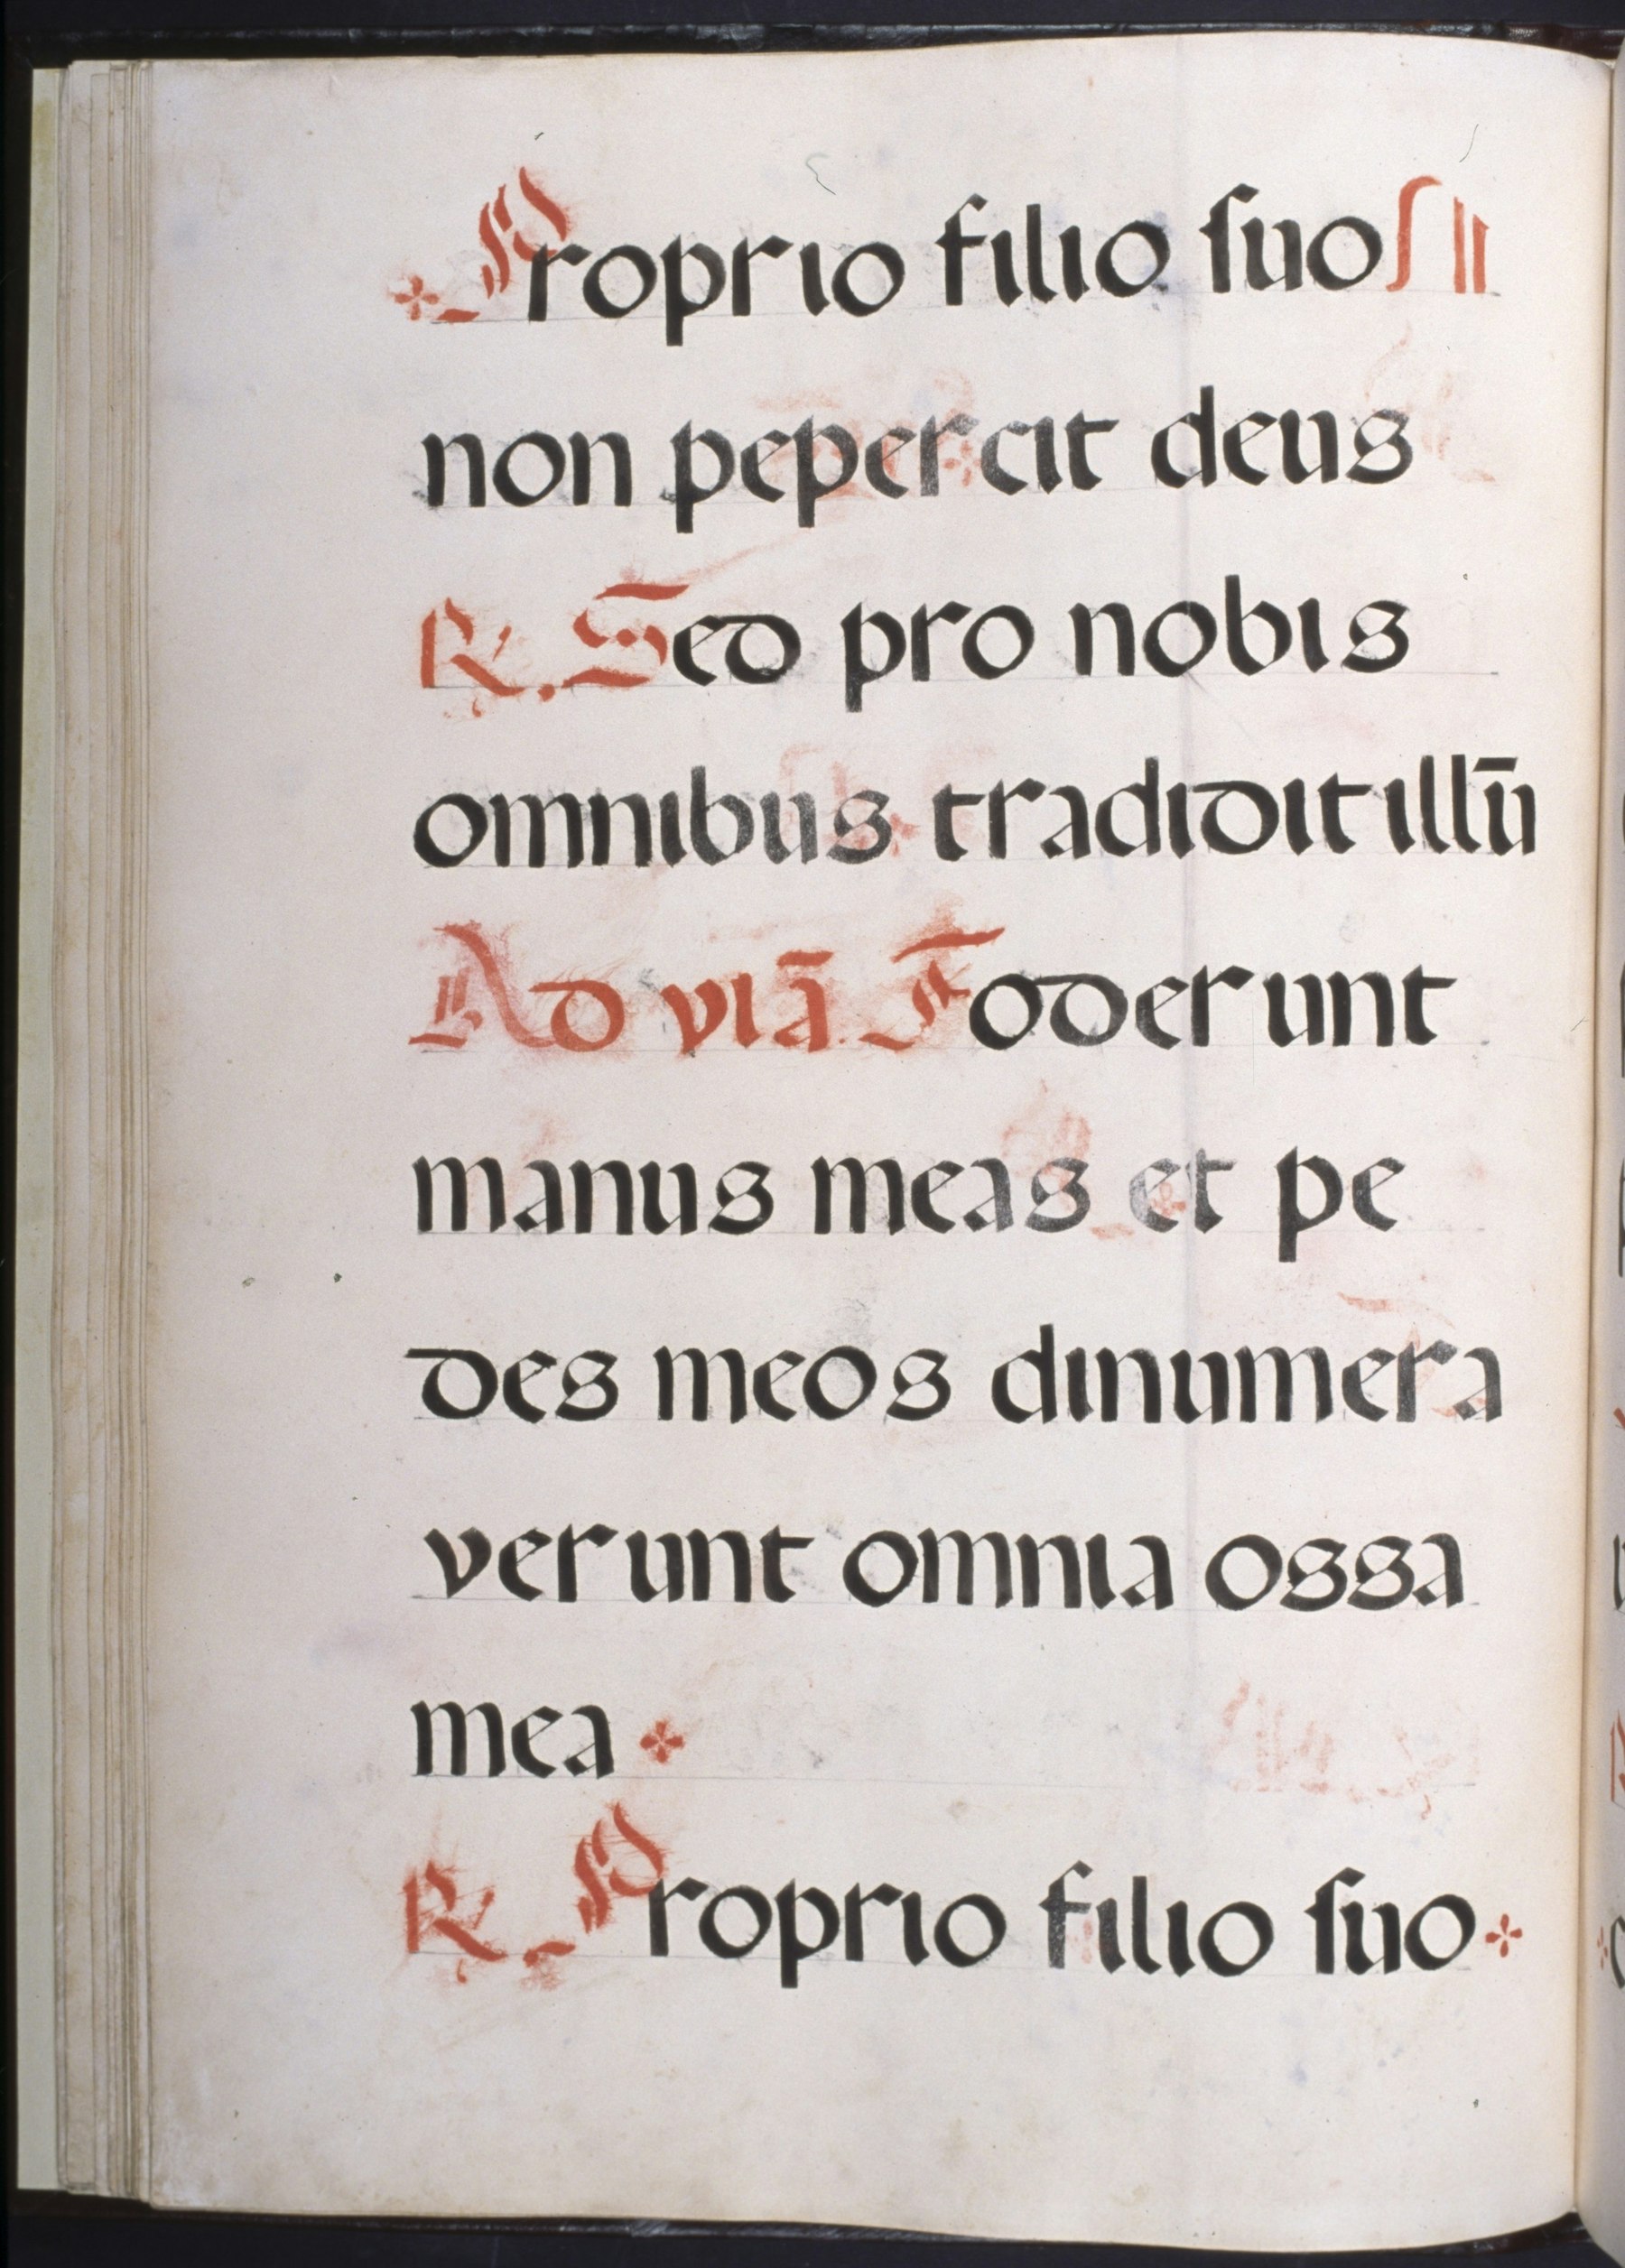 ✣ Proprio filio ſuo ſ ii
non pepercit deus
R. Sed pro nobis
omnibus tradidit illū
Ad viā. Foderunt
manus meas et pe
des meos dinumera
verunt omnia ossa
mea ✣
R. Proprio filio ſuo ✣